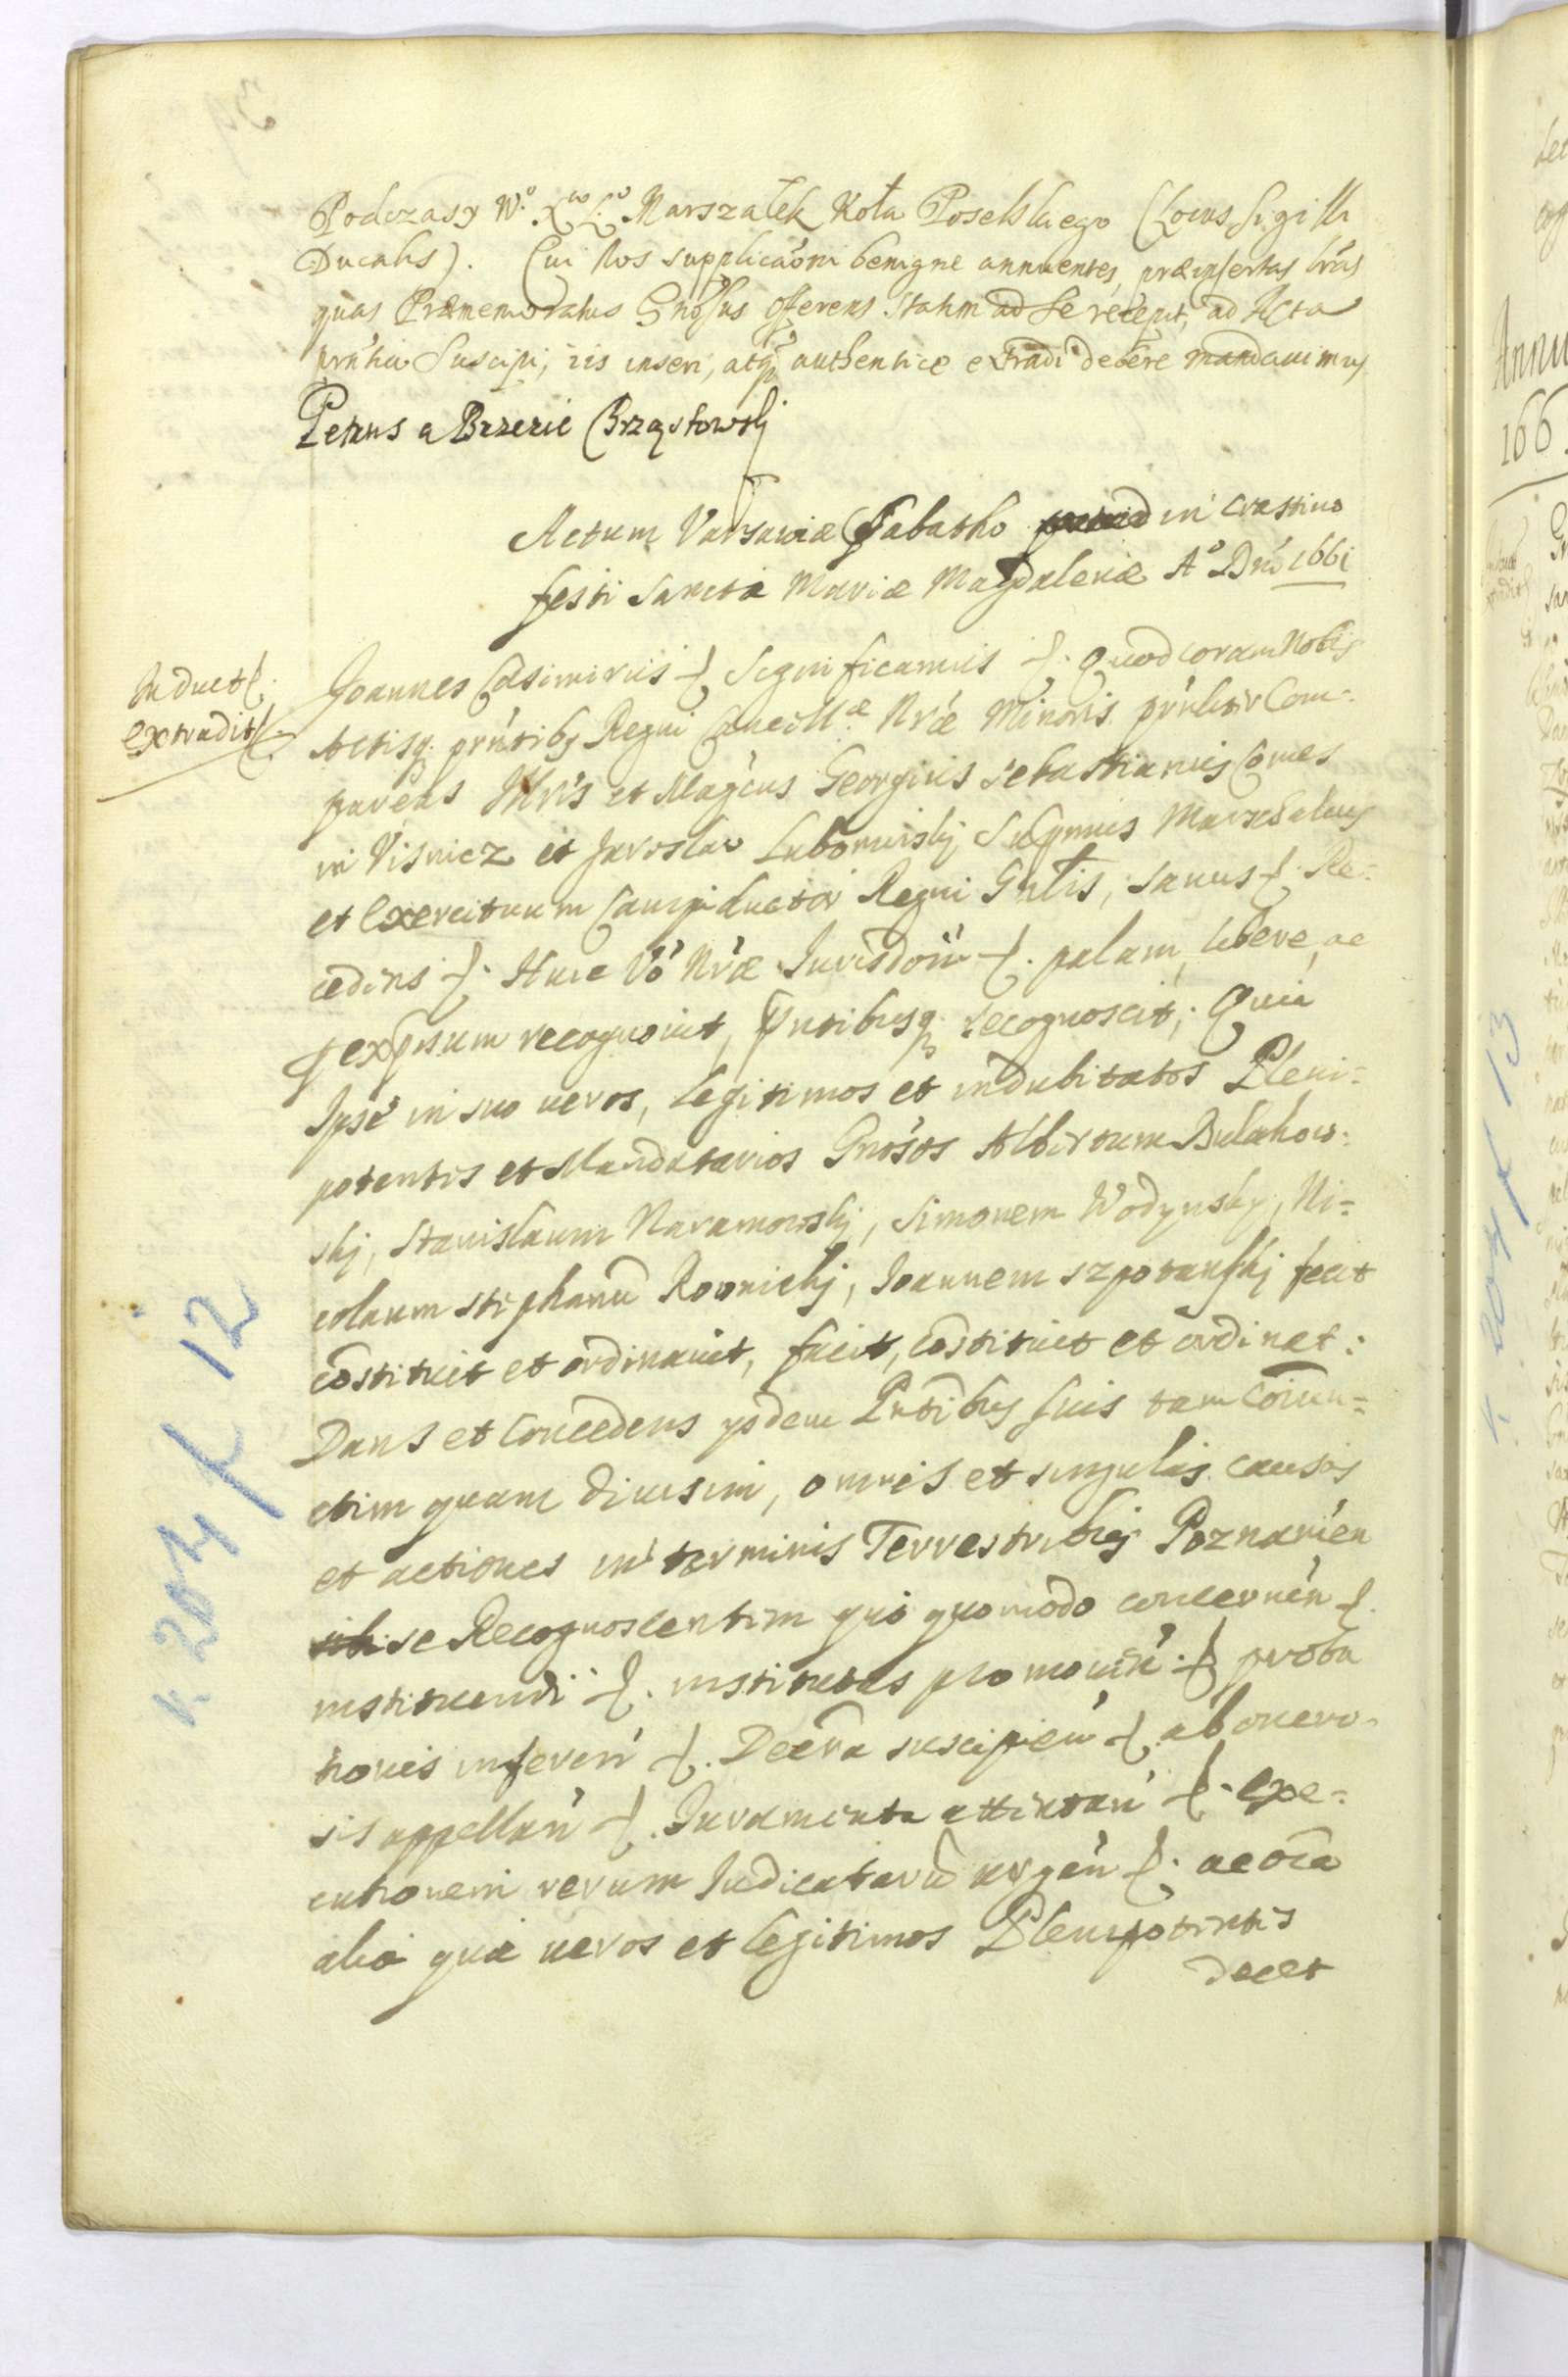 Podczasy W.º X.ʷᵒ L.º Marszałek Koła Poselskiego (Locus Sigilli
Ducalis). Cui Nos supplicaóni benigne annuentes, præinsertas lrás
quas Prænemoratus Gnósus Offerens Statim ad se recepit, ad Acta
prńtia Suscipi, iis inseri, atq; authentice extradi debere mandavimus
Petrus a Brzezie Brząstowskj
Actum Varsaviæ Sabatho in crastino
festi Sanctæ Mariæ Magdalenæ Aº Dńi 1661
Induct
extradit
Joannes Casimirus Significamus Quod coram Nobis
Actisq. prńtibg Regni Cancellæ Nræ Minoris prńliter Com-
parens Illris et Magćus Georgius Sebastianus Comes
in Visnicz et Jaroslav Lubomirskj Supremus Marschalcus
et Exercituum Campiductor Regni Gnlis, sanus Re-
cedens Huic Vó Nræ Jurisdoni palam, libere, ac
expressum recognovit, Pntibusq. recognoscit; Quia
Ipse in suo veros, legitimos et indubitatos Pleni-
potentes et Mandatarios Gnósos Albertum Bulakow-
skj, Stanislaum Naramowskj, Simonem Wodynsky, Ni-
colaum Stephanū Rovnickj, Joannem Szpotanskj fecit
cōstituit et ordinavit, facit, cōstituit et ordinat:
Dans et Concedens ysdem Pntibus suis tam Coniun-
ctim quam divisim, omnes et singulas causas
et actiones in terminis Terrestribus Poznanień
se Recognoscentem quo quomodo concerneń
instituendi institutas promoveń proba
tiones inferen Decra suscipień ab onero-
sis appellań Juramenta attentań Exe-
cutionem rerum Judicatarū urgeń ac oīa
alia quæ veros et legitimos Plenipotentes
decet
k. 204 f 12
k. 204 f 13
Annu
166